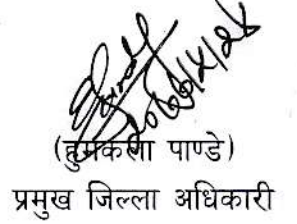 (हुमकला पाण्डे)
प्रमुख जिल्ला अधिकारी